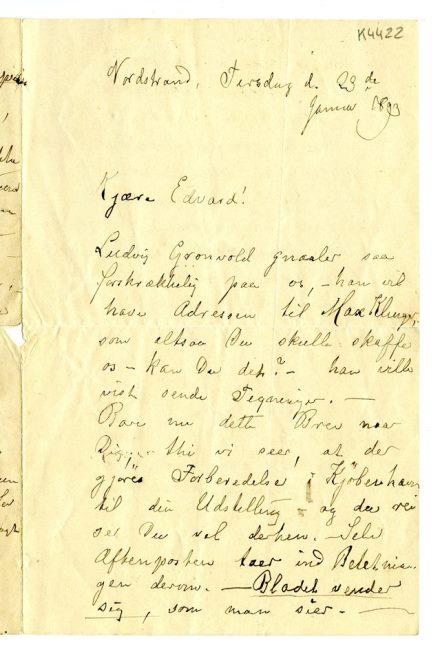 K4422
Nordstrand, Tirsdag d. 23de
Januar 1893
Kjære Edvard!
Ludvig Gronvold gnaaler saa
forskrækkelig paa os, – han vil
have Adressen til Max Klinger,
som altsaa Du skulle skaffe
os – kan Du det? – han ville
vist sende Tegninger. –
Bare nu dette Brev naar
Dig, – thi vi seer, at der
gjöres Forberedelse i Kjöbenhavn
til din Udstilling – og da rei
ser Du vel derhen. – Selv
Aftenposten taer ind Beretnin-
gen derom. – Bladet vender
sig, som man sier. –